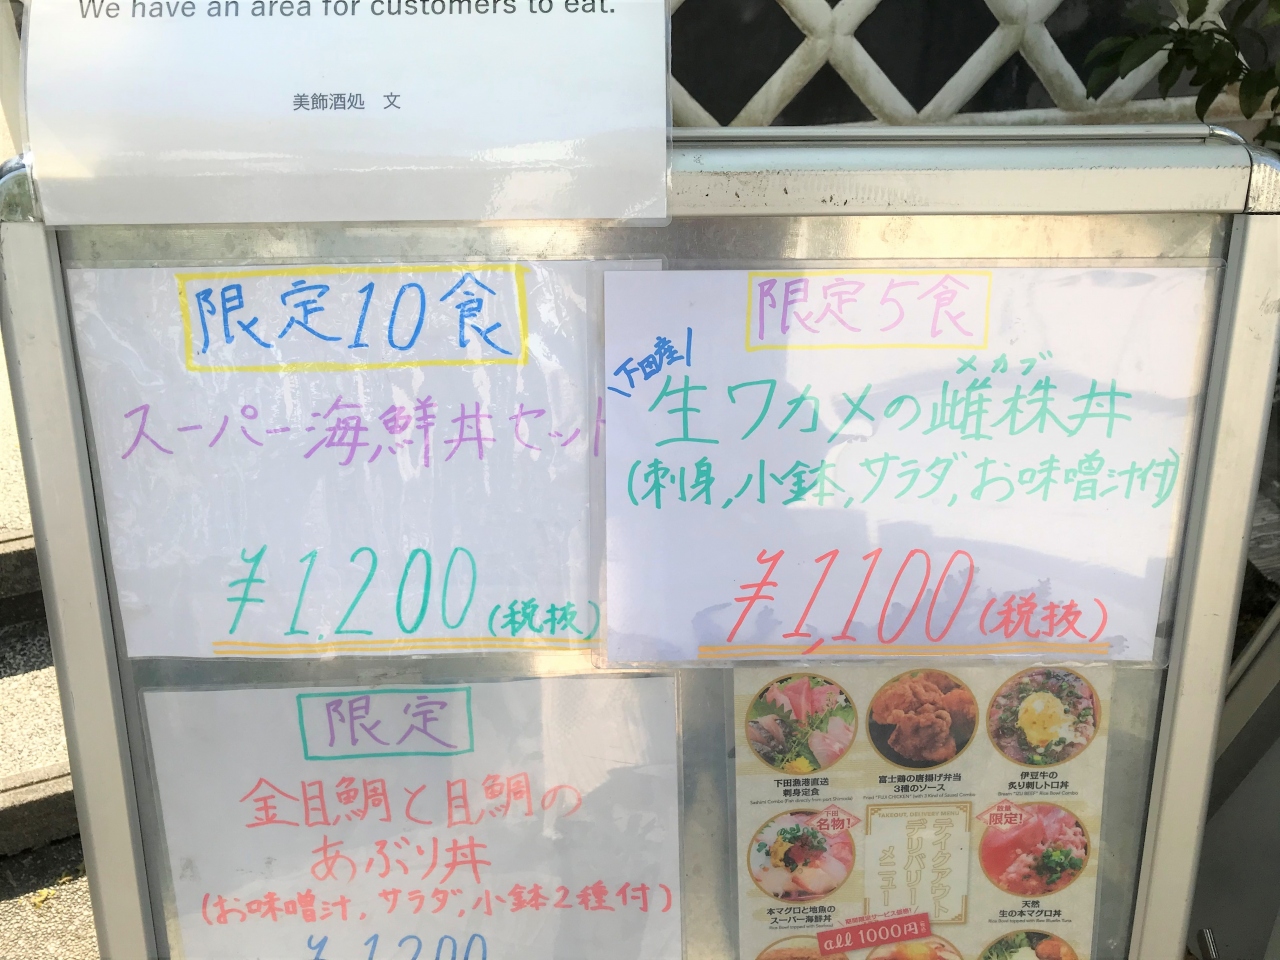 We have an area for customers to eat.
美飾酒処 文
限定10食
スーパー海鮮丼セット
¥1,200(税抜)
限定5食
下田産
メカブ
生ワカメの雌株丼
(刺身,小鉢,サラダ,お味噌汁付)
¥1,100(税抜)
限定
金目鯛と目鯛の
あぶり丼
(お味噌汁,サラダ,小鉢2種付)
¥1,200
下田漁港直送
刺身定食
富士鶏の唐揚げ弁当
3種のソース
伊豆牛の
炙り刺しトロ丼
下田
名物!
TAKEOUT, DELIVERY MENU
テイクアウト
デリバリー
メニュー
数量
限定!
本マグロと地魚の
スーパー海鮮丼
天然
生の本マグロ丼
all 1000円